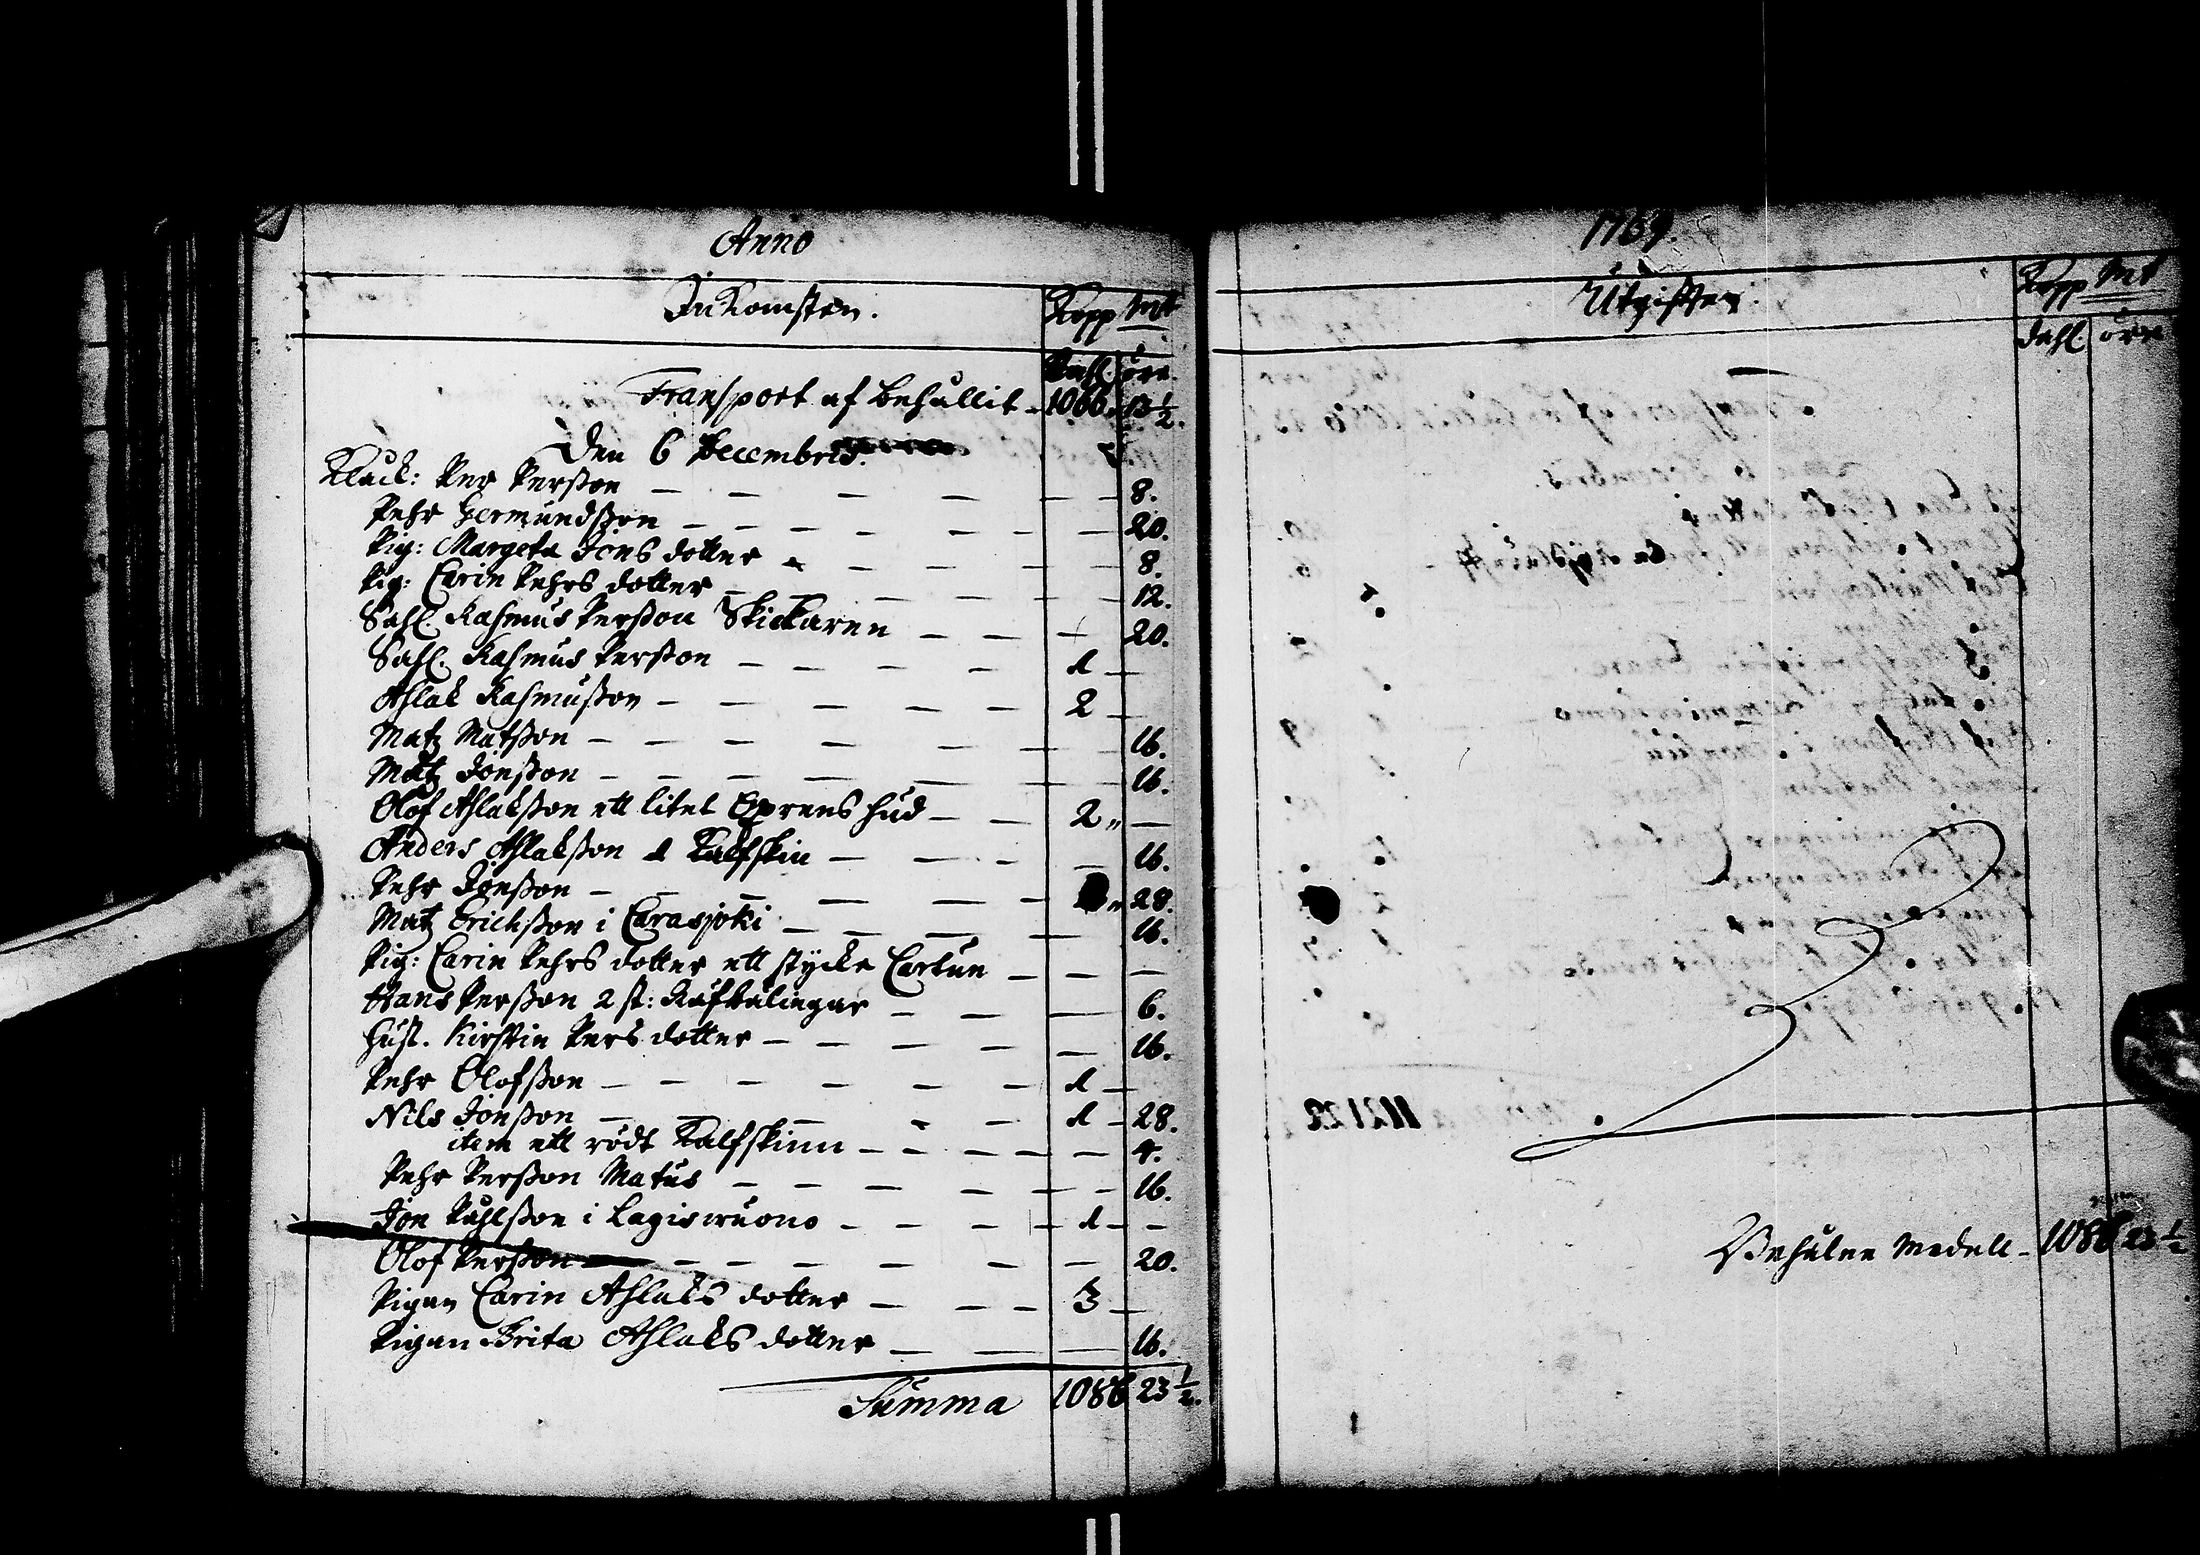 Anno
Inkomsten. Kopp Mt
Dahl. öre.
Transport af behållit - 1066. 13 1/2.
Den 6 Decembris.
Klock: Per Persson — — — — — — 8.
Pehr Germundsson — — — — — — 20.
Pig: Margeta Jons dotter — — — — — 8.
Pig: Carin Pehrs dotter — — — — — 12.
Sahl. Rasmus Persson Skickaren — — — 20.
Sahl. Rasmus Persson — — — — 1 —
Aslak Rasmusson — — — — — 2 —
Matz Matsson — — — — — — 16.
Matz Jonsson — — — — — — 16.
Olof Aslaksson ett litet Oxrens hud — — 2 „ —
Anders Aslaksson 1 Kalfskin — — — — 16.
Pehr Jonsson — — — — — „ 28.
Matz Erichsson i Carasjoki — — — — — 16.
Pig: Carin Pehrs dotter ett stycke Cartun — — —
Hans Persson 2 st: Räfkalingar — — — 6.
Hust. Kirstin Pers dotter — — — — — 16.
Pehr Olofsson — — — — — — 1 —
Nils Jonsson — — — — — 1 - 28.
item ett rödt Kalfskinn — — — — — — 4.
Pehr Persson Matus — — — — — — 16.
Jon Påhlsson i Lagiswuono — — — — 1 — —
Olof Persson — — — — — — 20.
Pigan Carin Aslaks dotter — — — 3 —
Pigan Brita Aslaks dotter — — — 16.
Summa 1086 23 1/2.
1769.
Utgiften. Kopp Mt
Dahl. öre
Behålne Medell - 1086 23 1/2